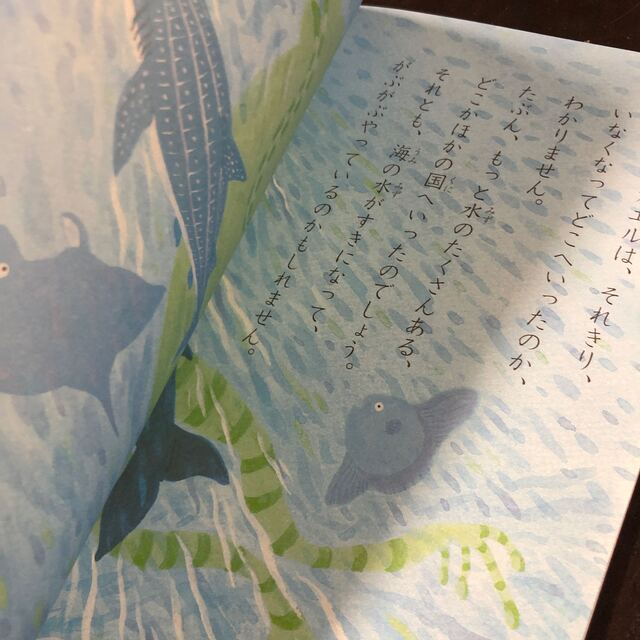 エルは、それきり、
いなくなってどこへいったのか、
わかりません。
たぶん、もっと水のたくさんある、
どこかほかの国へいったのでしょう。
それとも、海の水がすきになって、
がぶがぶやっているのかもしれません。